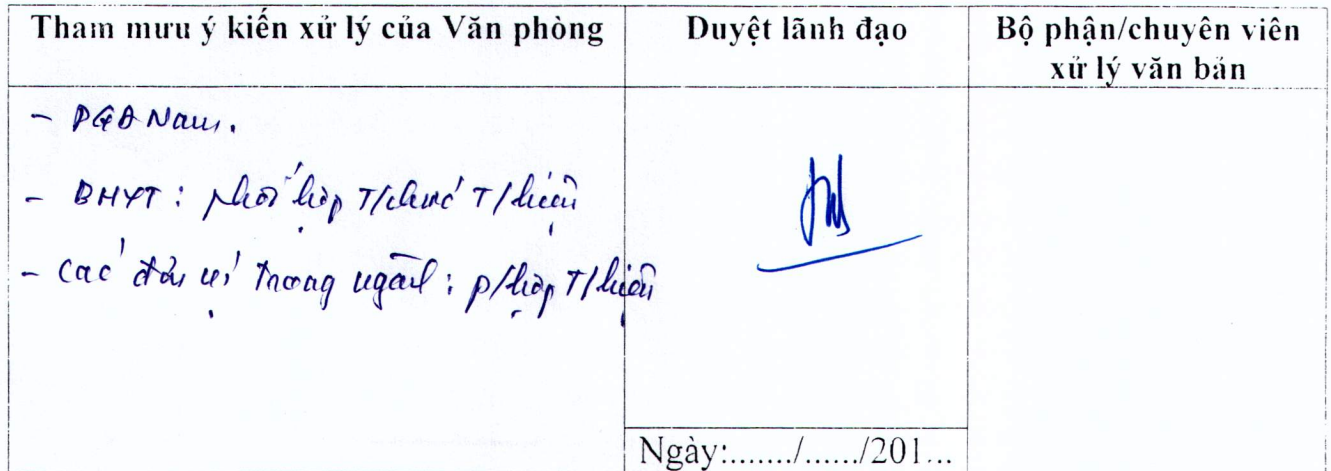 Tham mưu ý kiến xử lý của Văn phòng
Duyệt lãnh đạo
Bộ phận/chuyên viên
xử lý văn bản
- PGĐ Nam.
- BHYT: phối hợp T/chức T/hiện
- Các đơn vị trong ngành: p/hợp T/hiện
Ngày:......./....../201...